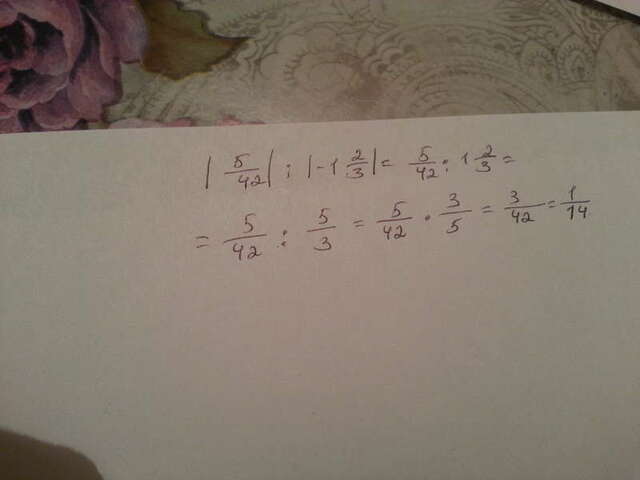 |5/42| : |-1 2/3| = 5/42 : 1 2/3 =
= 5/42 : 5/3 = 5/42 · 3/5 = 3/42 = 1/14